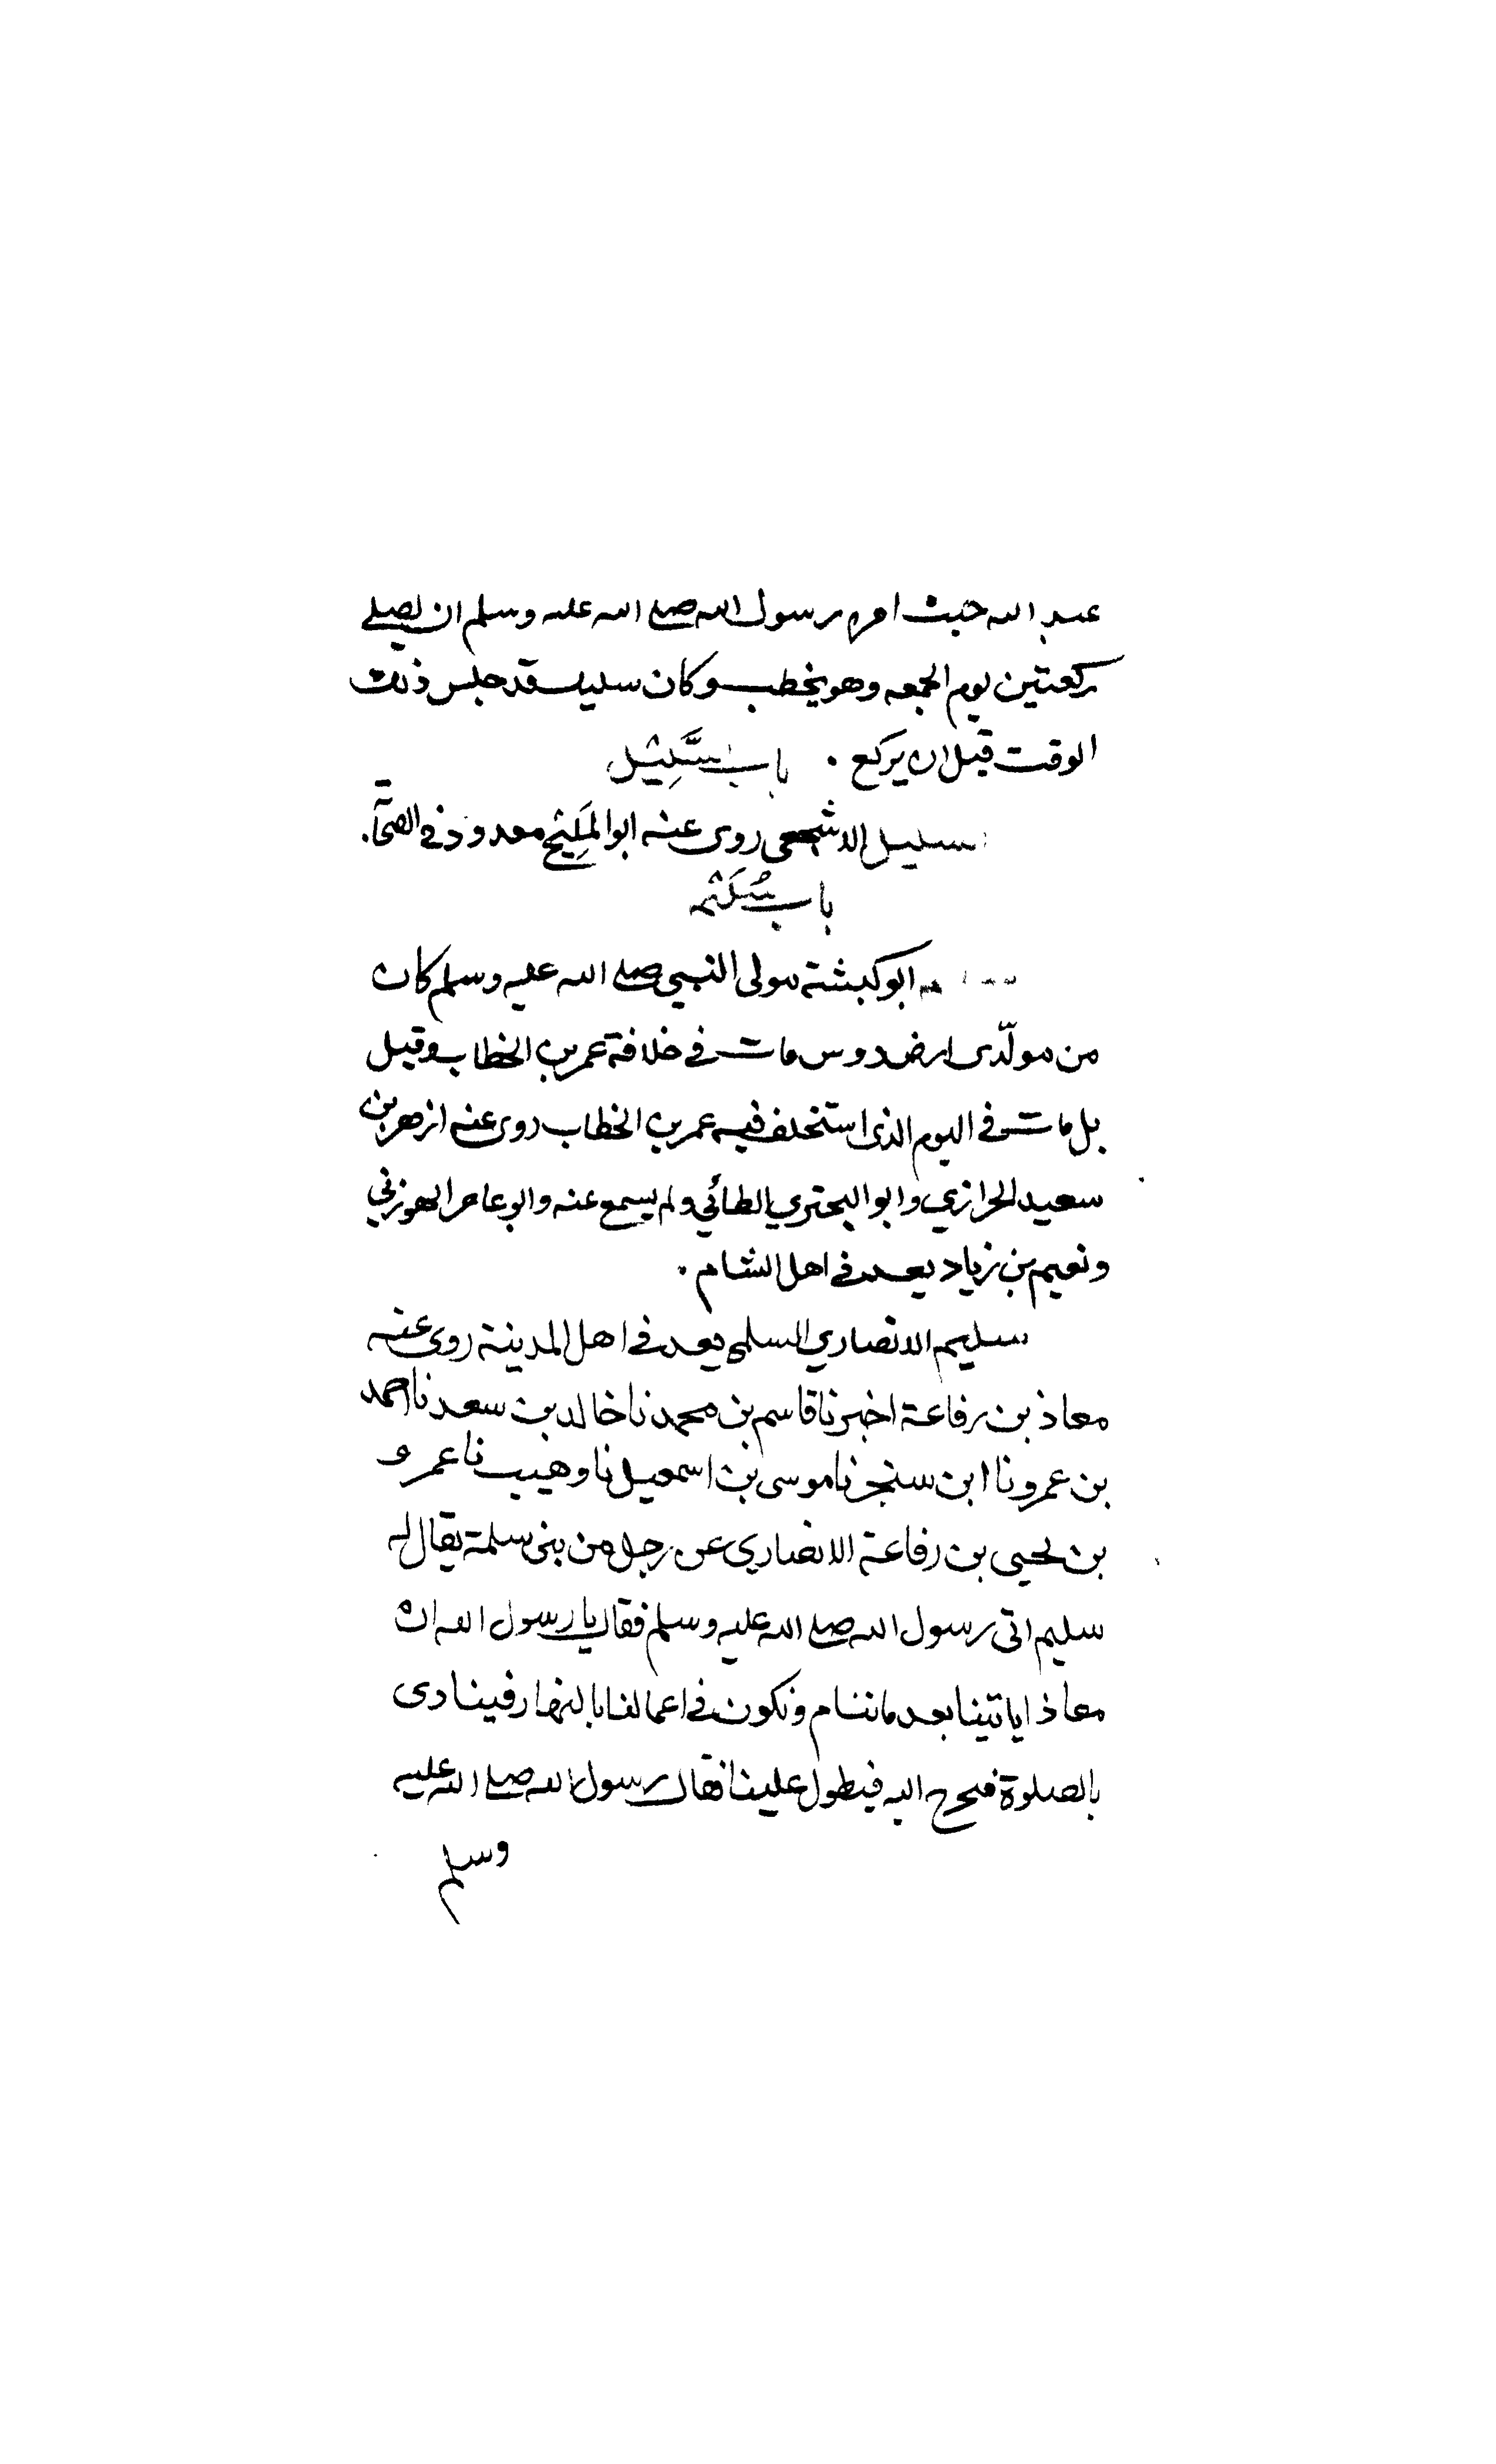 عبد الله حيث امره رسول الله صلى الله عليه وسلم ان يصلي
ركعتين يوم الجمعه وهو يخطب وكان سليك قد جلس ذلك
الوقت قبل ان يركع . باب سَّلِيْل
سليل الاشجعي روى عنه ابو المَلِيْح معدود في الصحآبة.
باب سُلَيْم
ابو كبشة مولى النبي صلى الله عليه وسلم كان
من مولّدى ارض دوس مات في خلافة عمر بن الخطاب وقيل
بل مات في اليوم الذى استخلف فيه عمر بن الخطاب روى عنه ازهر بن
سعيد الحرازي وابو البحتري الطائي ولم يسمع عنه وابو عامر الهوزني
ونعيم بن زياد يعد في اهل الشام .
سليم الانصاري السلمي يعد في اهل المدينة روى عنه
معاذ بن رفاعة اخبرنا قاسم بن محمد نا خالد بن سعد نا احمد
بن عمرو نا ابن سنجر نا موسى بن اسمعيل نا وهيب نا عمرو
بن يحيى بن رفاعة الانصاري عن رجل من بنى سلمة يقال له
سليم اتى رسول الله صلى الله عليه وسلم فقال يا رسول الله ان
معاذا ياتينا بعد ما ننام ونكون في اعمالنا بالنهار فينادى
بالصلوة فنخرج اليه فيطول علينا فقال رسول الله صلى الله عليه
وسلم